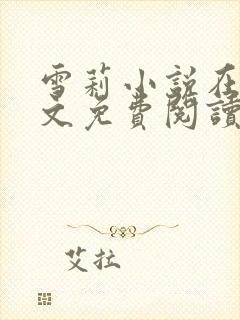 雪莉小說在
文免費閱讀
艾拉